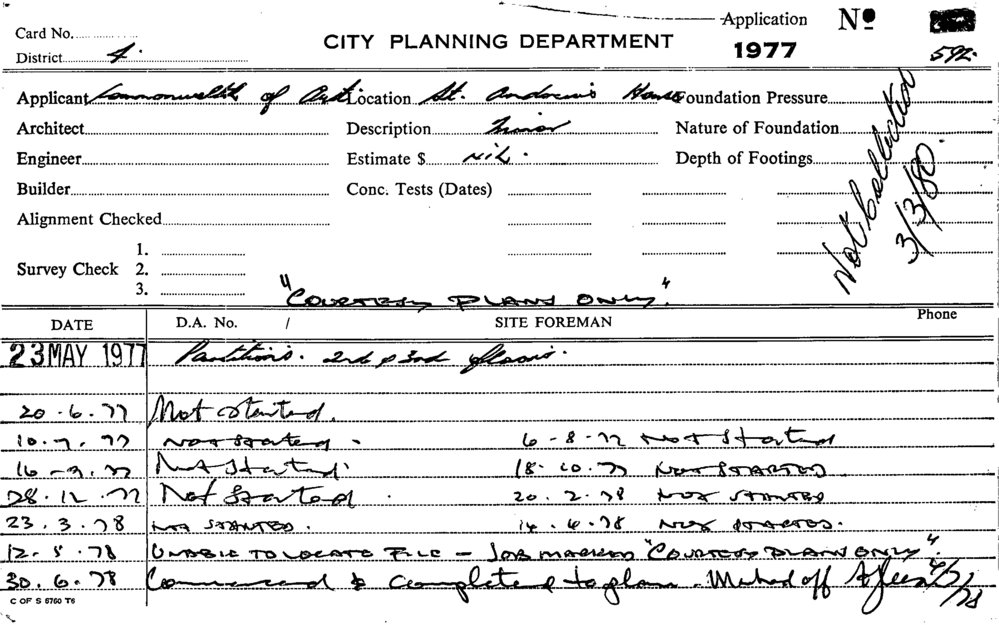 Card No.
Application Nº
CITY PLANNING DEPARTMENT
District 4. 1977 592.
Applicant Commonwealth of Aust. Location St. Andrew's House Foundation Pressure
Architect Description Minor Nature of Foundation
Engineer Estimate $ NIL. Depth of Footings
Builder Conc. Tests (Dates)
Alignment Checked
Not Collected 3/3/80.
1.
Survey Check 2.
3.
"COURTESY PLANS ONLY".
DATE D.A. No. / SITE FOREMAN Phone
23 MAY 1977 Partitions. 2nd & 3rd floors.
20.6.77 Not Started.
10.7.77 NOT Started. 6-8-77 Not Started
16-9.77 Not Started. 18-10.77 NOT STARTED
28.12.77 Not Started. 20.2.78 NOT STARTED
23.3.78 NOT STARTED. 14.4.78 NOT STARTED.
12.5.78 UNABLE TO LOCATE FILE - JOB MARKED "COURTESY PLANS ONLY".
30.6.78 Commenced & completed to plans. Marked off 4/7/78
C OF S 5760 T6